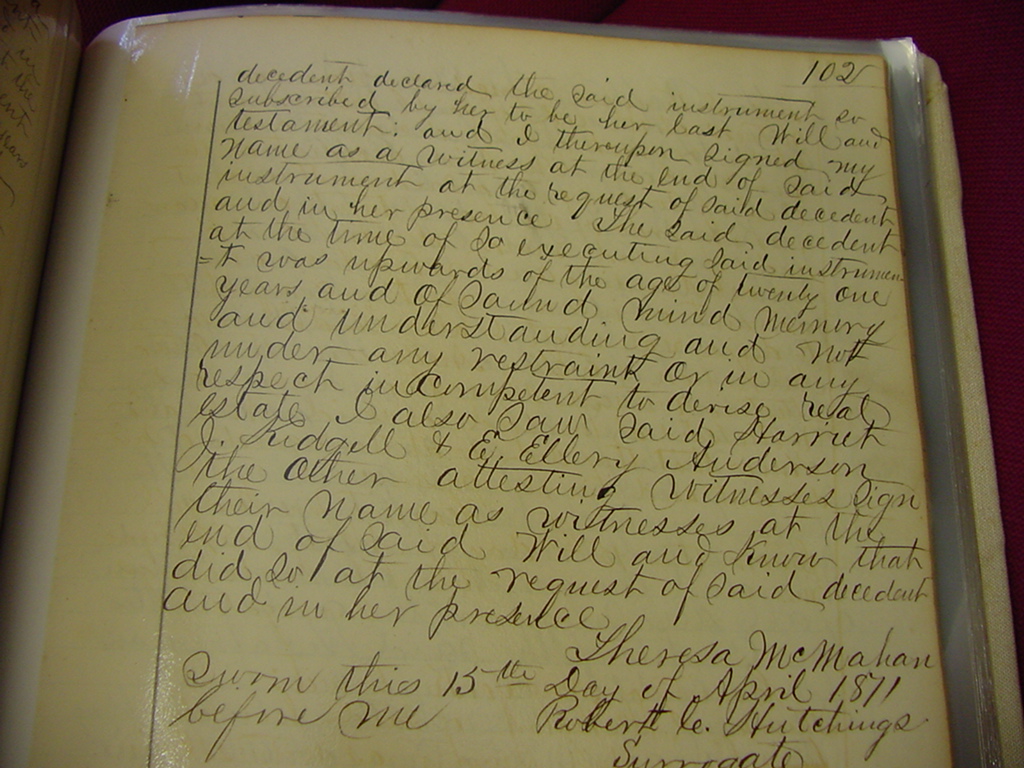 102
decedent declared the said instrument so
subscribed by her to be her last Will and
testament: and I thereupon signed my
name as a witness at the end of said
instrument at the request of said decedent
and in her presence The said decedent
at the time of so executing said instrumen
=t was upwards of the age of twenty one
years and of sound mind memory
and understanding and not
under any restraint or in any
respect incompetent to devise real
estate I also saw said Harriet
J. Ridgell & E. Ellery Anderson
the other attesting witnesses sign
their name as witnesses at the
end of said Will and know that
did so at the request of said decedent
and in her presence
Theresa McMahan
Sworn this 15th Day of April 1871
before me Robert C. Hutchings
Surrogate